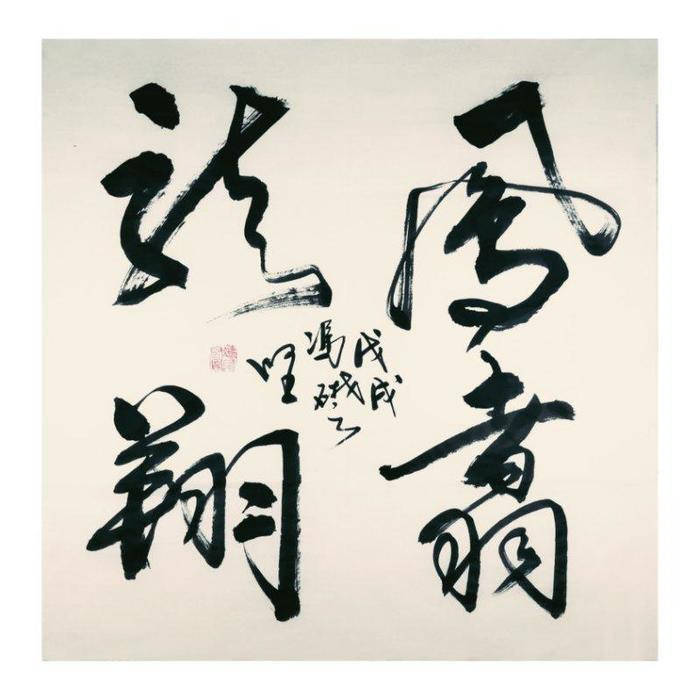 鳳翥
龍翔
戊戌